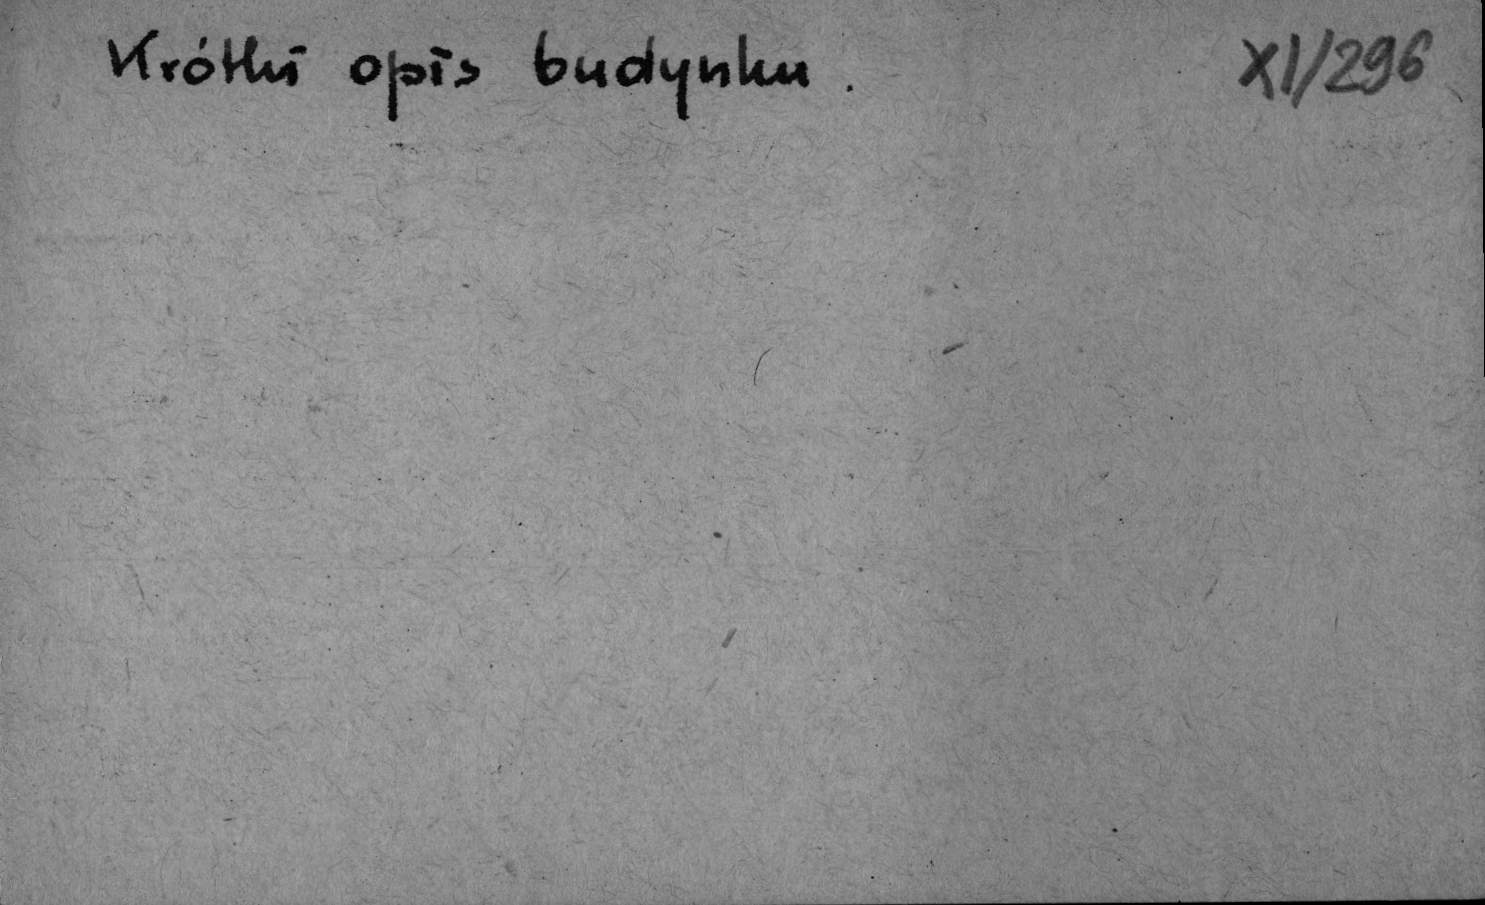 Krótki opis budynku. XI/296